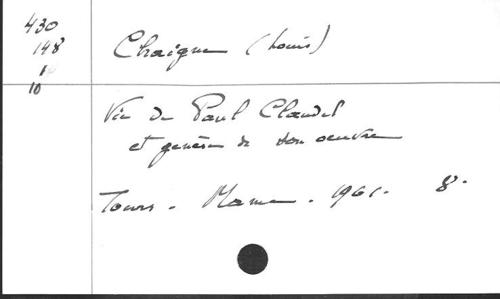 430
148
10
Chaigne (Louis)
Vie de Paul Claudel
et genèse de son oeuvre
Tours - Mame - 1961. 8.